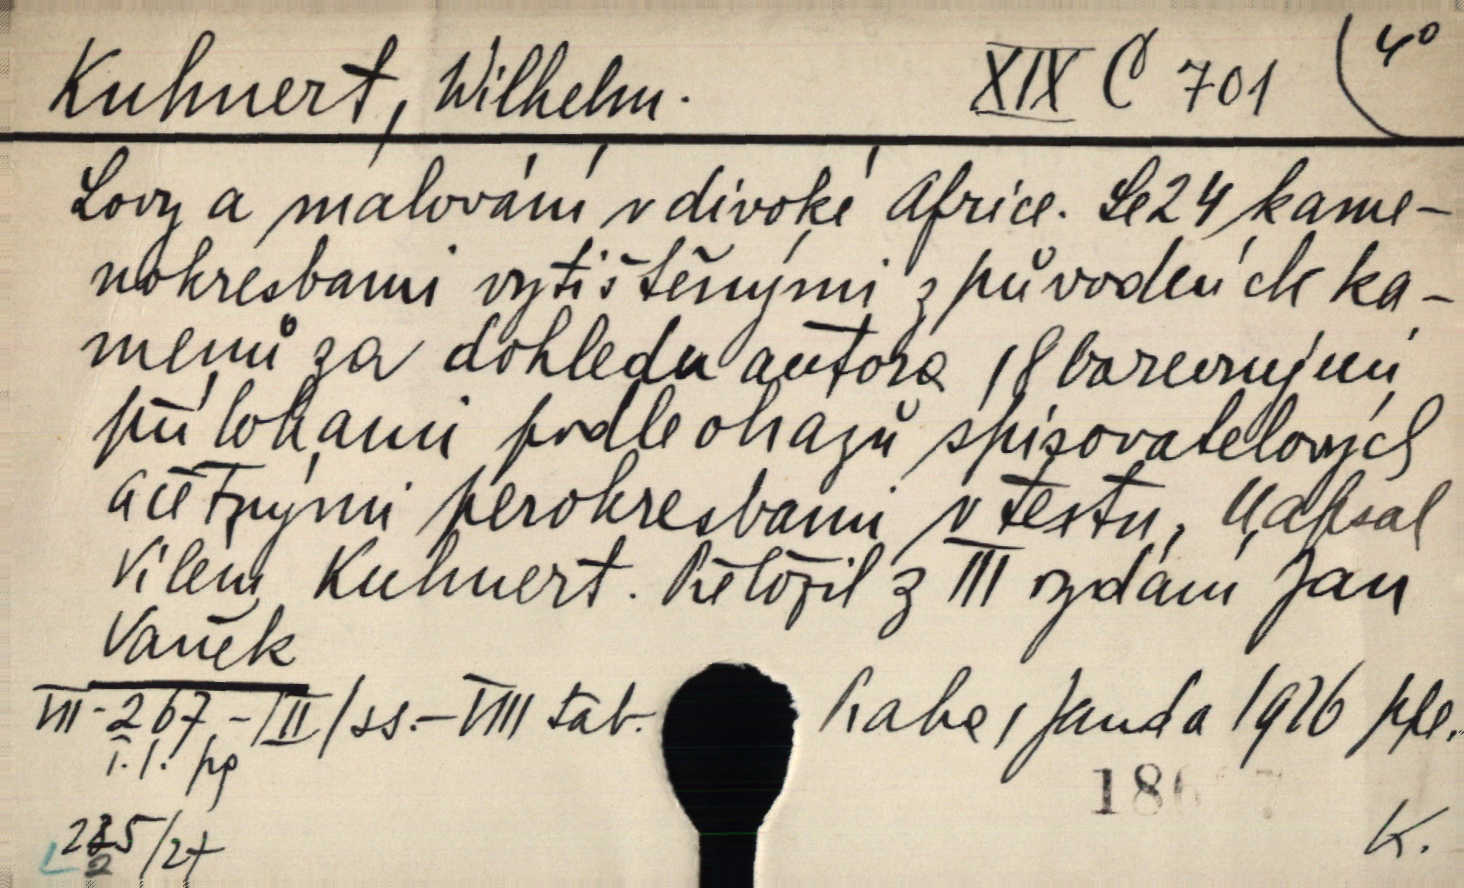 Kuhnert, Wilhelm. XIX C 701 4°
Lovy a malování v divoké Africe. Se 24 kame-
nokresbami vytištěnými z původních ka-
menů za dohledu autora, 8 barevnými
přílohami podle obrazů spisovatelových
a četnými perokresbami v textu, Napsal
Vilém Kuhnert. Přeložil z III vydání Jan
Vaněk
VII-267-/II/ss.-VIII tab. Praha, Janda 1926 ppl.
i. l. pg
186 7
K.
L 235/27
2